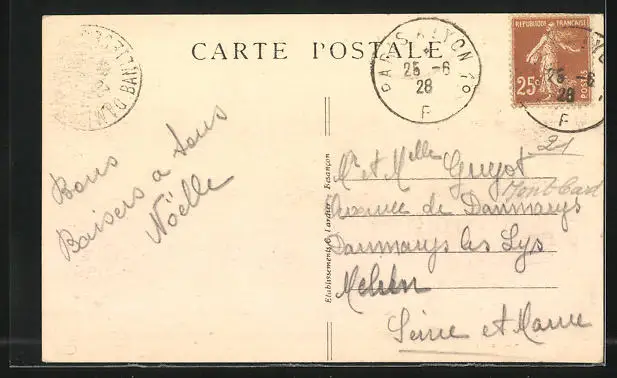 CARTE POSTALE
PARIS A LYON 1°
25 -6
28
F
REPUBLIQUE FRANÇAISE
25c
POSTES
25 -6
28
F
Bons
Baisers a tous
Noëlle
Etablissements C. Lardier - Besançon
21
Mr et Melle Guyot
Avenue de Dammarys
Dammarys les Lys
Melun
Seine et Marne